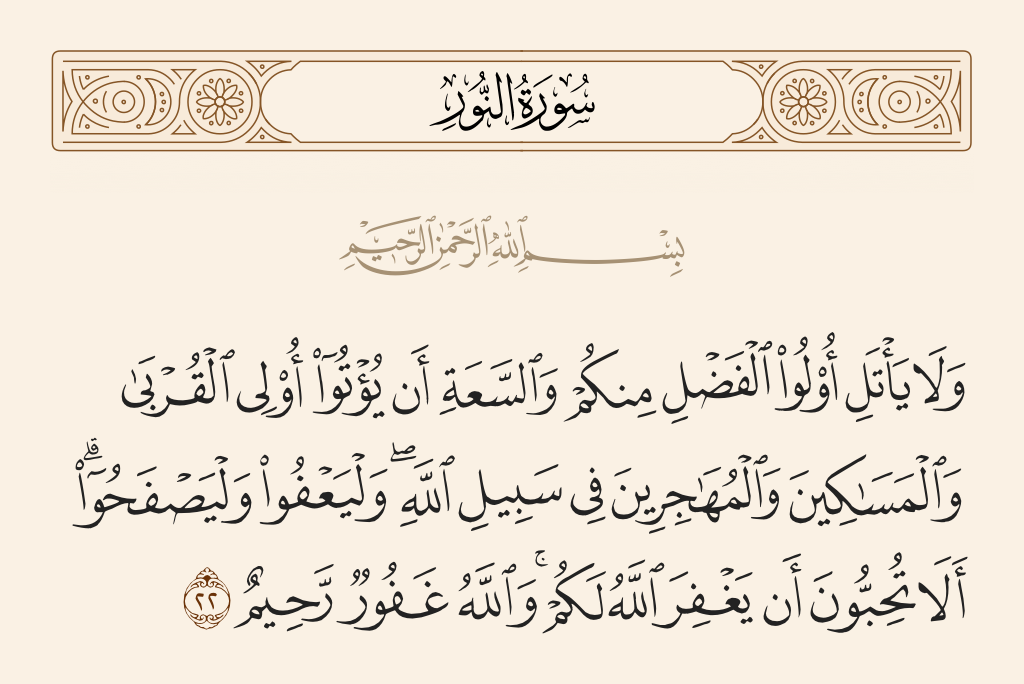 سُورَةُ النُّورِ
بِسْمِ ٱللَّهِ ٱلرَّحْمَٰنِ ٱلرَّحِيمِ
وَلَا يَأْتَلِ أُو۟لُوا۟ ٱلْفَضْلِ مِنكُمْ وَٱلسَّعَةِ أَن يُؤْتُوٓا۟ أُو۟لِى ٱلْقُرْبَىٰ
وَٱلْمَسَـٰكِينَ وَٱلْمُهَـٰجِرِينَ فِى سَبِيلِ ٱللَّهِ ۖ وَلْيَعْفُوا۟ وَلْيَصْفَحُوٓا۟ ۗ
أَلَا تُحِبُّونَ أَن يَغْفِرَ ٱللَّهُ لَكُمْ ۚ وَٱللَّهُ غَفُورٌ رَّحِيمٌ ٢٢